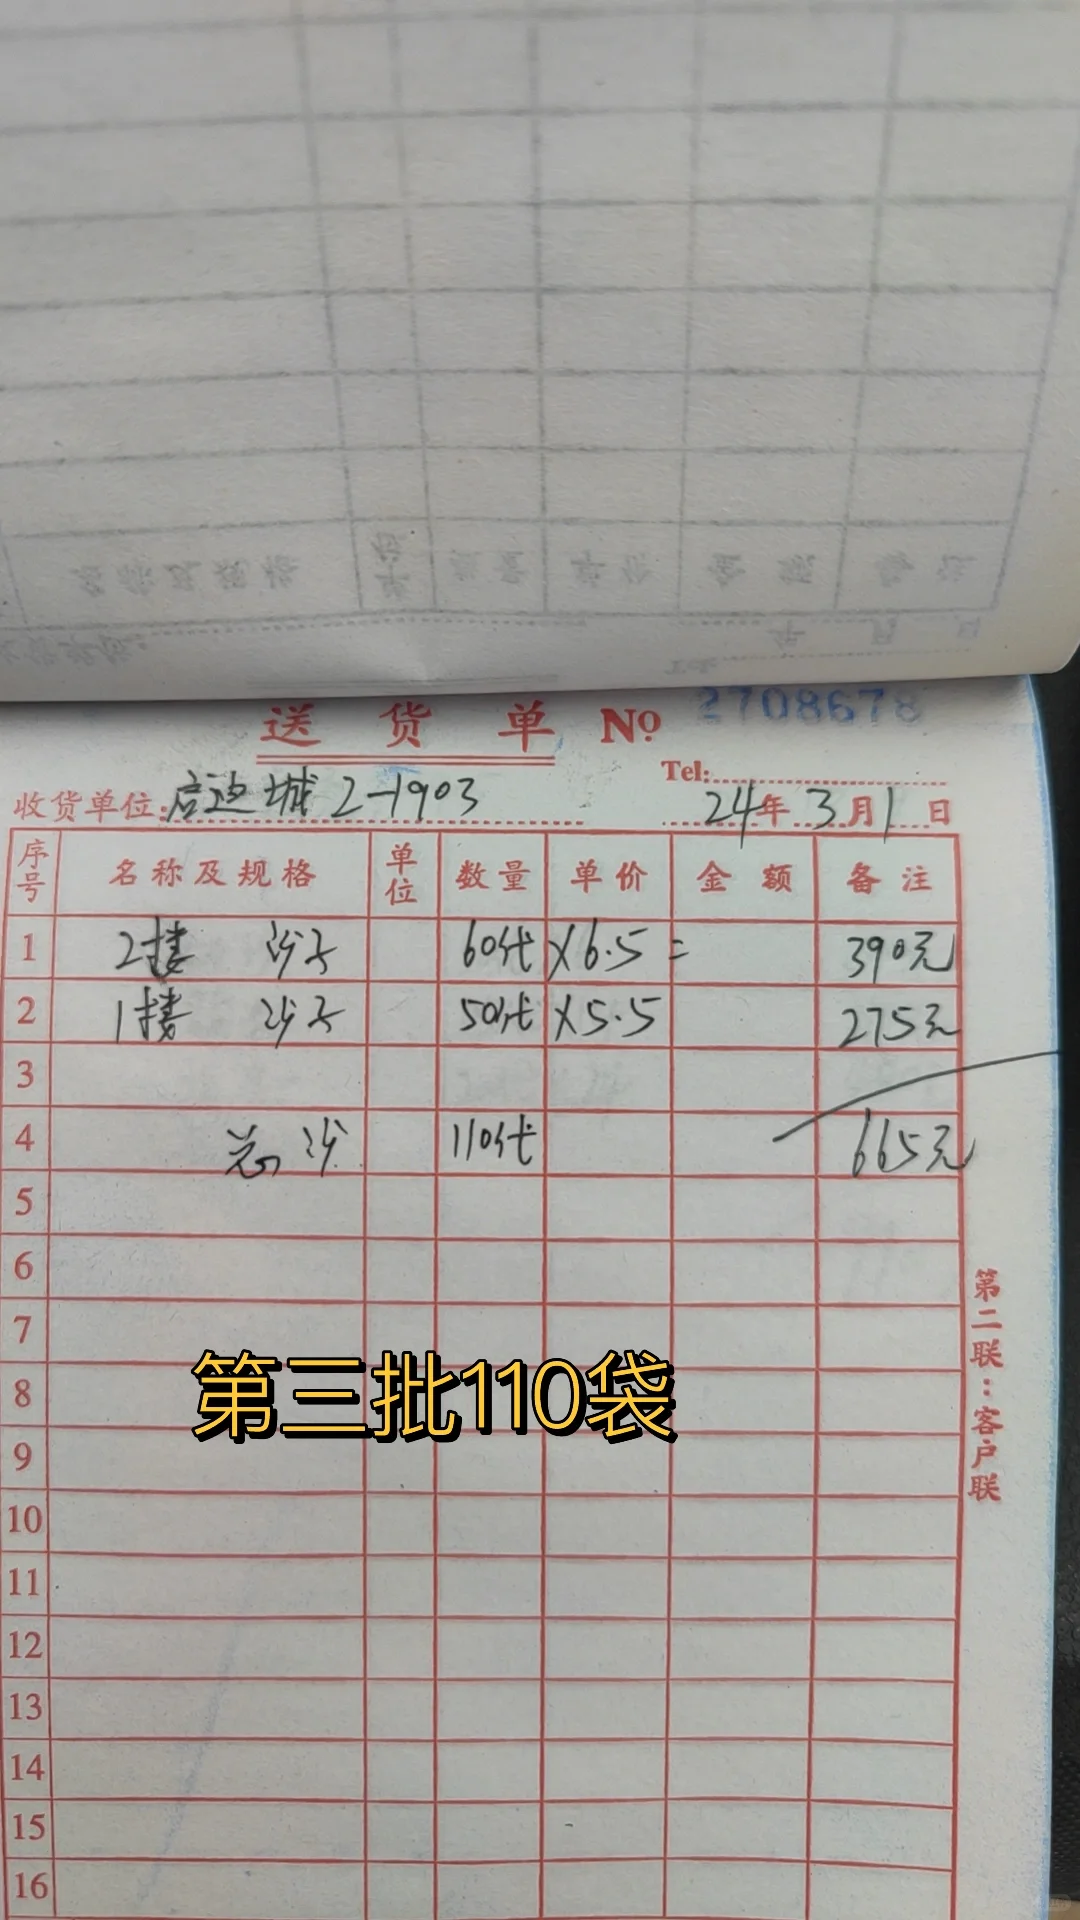 送货单 No 2708678
Tel:
收货单位:启迪城2-1903 24年3月1日
序号 名称及规格 单位 数量 单价 金额 备注
1 2楼 沙子 60代 X6.5 = 390元
2 1楼 沙子 50代 X5.5 275元
3
4 总沙 110代 665元
5
6
7
第三批110袋
8
9
10
11
12
13
14
15
16
第二联:客户联